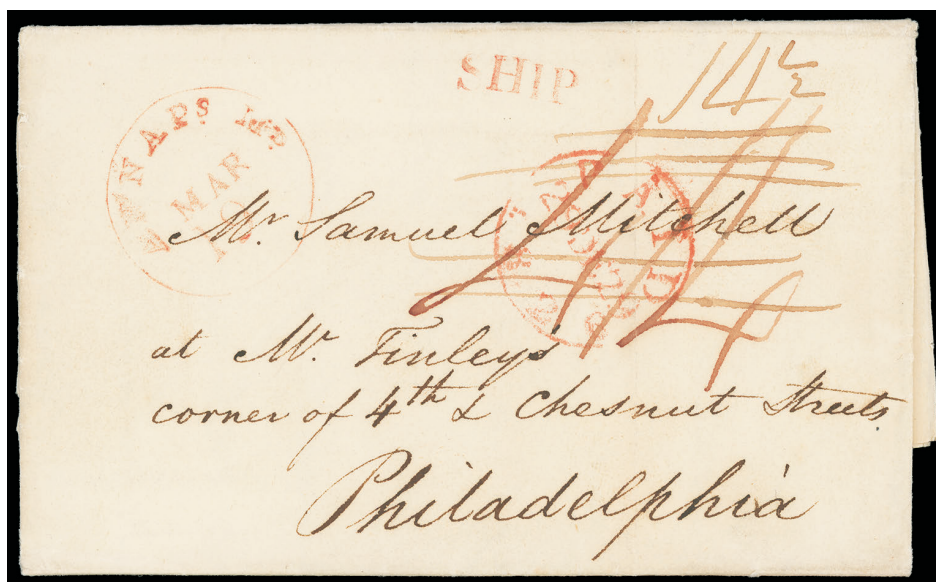 SHIP
14½
ANNAPS Md.
MAR
PAID
Mr. Samuel Mitchell
at Mr. Finleys
corner of 4th & Chesnut Streets
Philadelphia